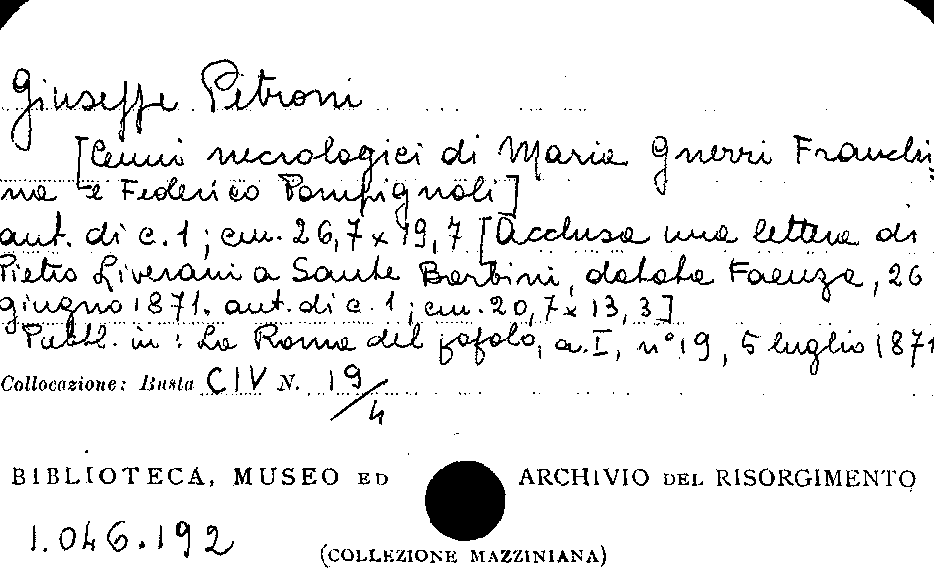 Giuseppe Petroni
[Cenni necrologici di Maria Guerri Franchi=
na e Federico Pompignoli]
aut. di c. 1 ; cm. 26,7 x 19,7 [Acclusa una lettera di
Pietro Liverani a Sante Barbini, datata Faenza, 26
giugno 1871. aut. di c. 1 ; cm. 20,7 x 13,3]
Pubbl. in : La Roma del popolo, a. I, n° 19, 5 luglio 1871
Collocazione: Busta CIV N. 19/4
BIBLIOTECA, MUSEO ED ARCHIVIO DEL RISORGIMENTO
1.046.192
(COLLEZIONE MAZZINIANA)